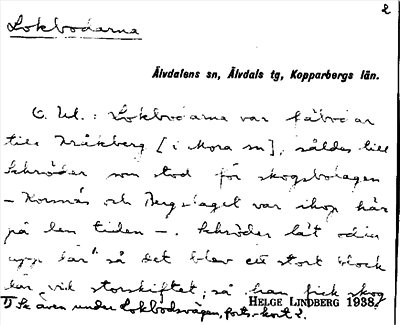 2
Lokbodarna
Älvdalens sn, Älvdals tg, Kopparbergs län.
O. Ul.: Lokbodarna var fäbodar
till Kråkberg [i Mora sn], såldes till
Schröder som stod för skogsbolagen
– Korsnäs och Bergslaget var ihop här
på den tiden –. Schröder lät odla
upp där så det blev ett stort block
där vid storskiftet, så han fick skog
Se även under Lokbodsvägen, forts. kort 2.
HELGE LINDBERG 1938.